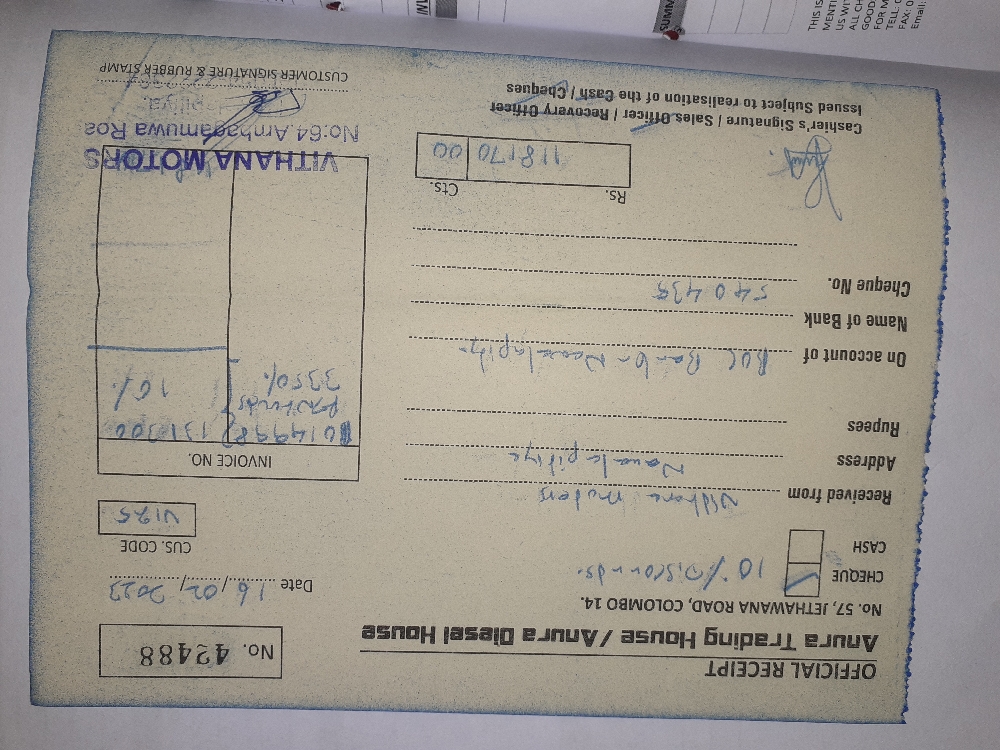 OFFICIAL RECEIPT
Anura Trading House / Anura Diesel House
No. 57, JETHAWANA ROAD, COLOMBO 14.
No. 42488
CHEQUE
10% Discounds.
CASH
Date 16/02/2023
CUS. CODE
V125
Received from Vithana motors
Address Nawalapitiya
Rupees
On account of BOC Bank Nawalapitiya
Name of Bank
Cheque No. 540435
INVOICE NO.
014998 131300
3350/. 10%
Rs. Cts.
118170 00
Cashier's Signature / Sales Officer / Recovery Officer
Issued Subject to realisation of the Cash / Cheques
VITHANA MOTORS
No:64.Ambagamuwa Roa
CUSTOMER SIGNATURE & RUBBER STAMP
SUMM
THIS IS
MENTI
US WI
ALL CH
GOOD
FOR M
TELL: 0
FAX: 0
Email: